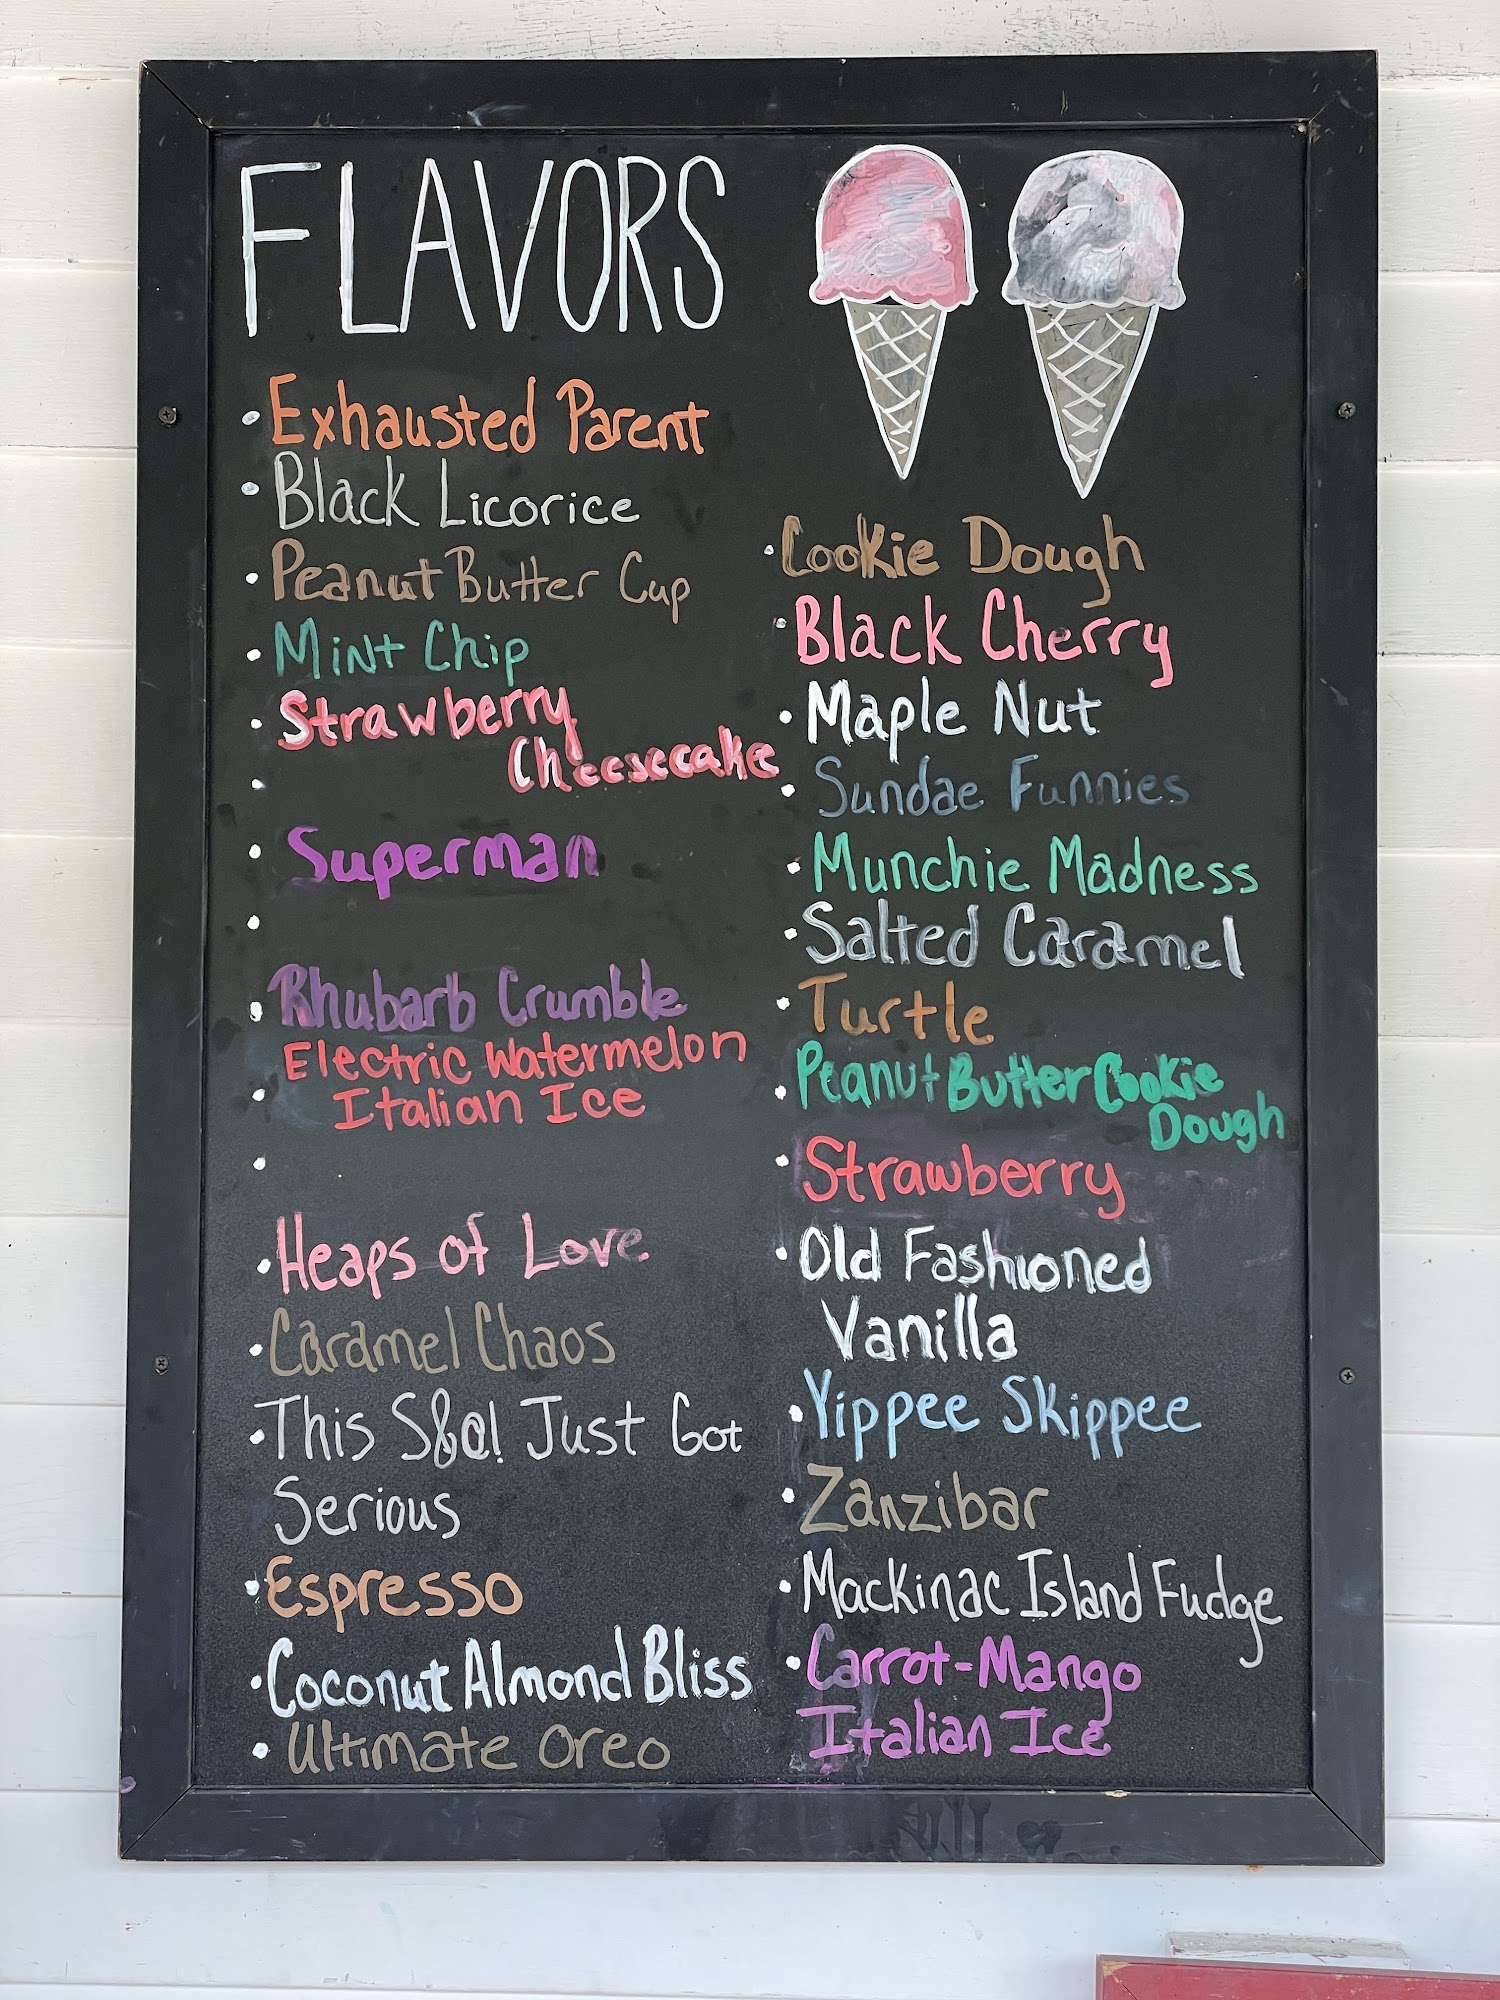 FLAVORS
Exhausted Parent
Black Licorice
Peanut Butter Cup
Mint Chip
Strawberry
Cheesecake
Superman
Rhubarb Crumble
Electric Watermelon
Italian Ice
Heaps of Love
Caramel Chaos
This S&@! Just Got
Serious
Espresso
Coconut Almond Bliss
Ultimate Oreo
Cookie Dough
Black Cherry
Maple Nut
Sundae Funnies
Munchie Madness
Salted Caramel
Turtle
Peanut Butter Cookie
Dough
Strawberry
Old Fashioned
Vanilla
Yippee Skippee
Zanzibar
Mackinac Island Fudge
Carrot-Mango
Italian Ice